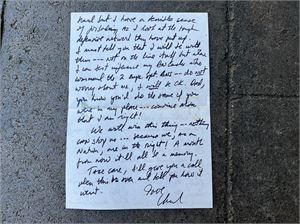 hard but I have a terrible sense
of foreboding as I look at the rough
defensive network they have put up.
I must tell you that I will be with
them --- not on the line itself but where
I can best influence my
command the 2 days --- do not
worry about me, I will be OK. God,
you know you'd do the same if you
were in my place --- convince Mom
that I am right!
We will win this thing --- nothing
can stop us --- because we're a
Nation, we're in the right! A month
from now it'll all be a memory.
Take care, I'll give you a call
when this be over and tell you how it
went.
Love